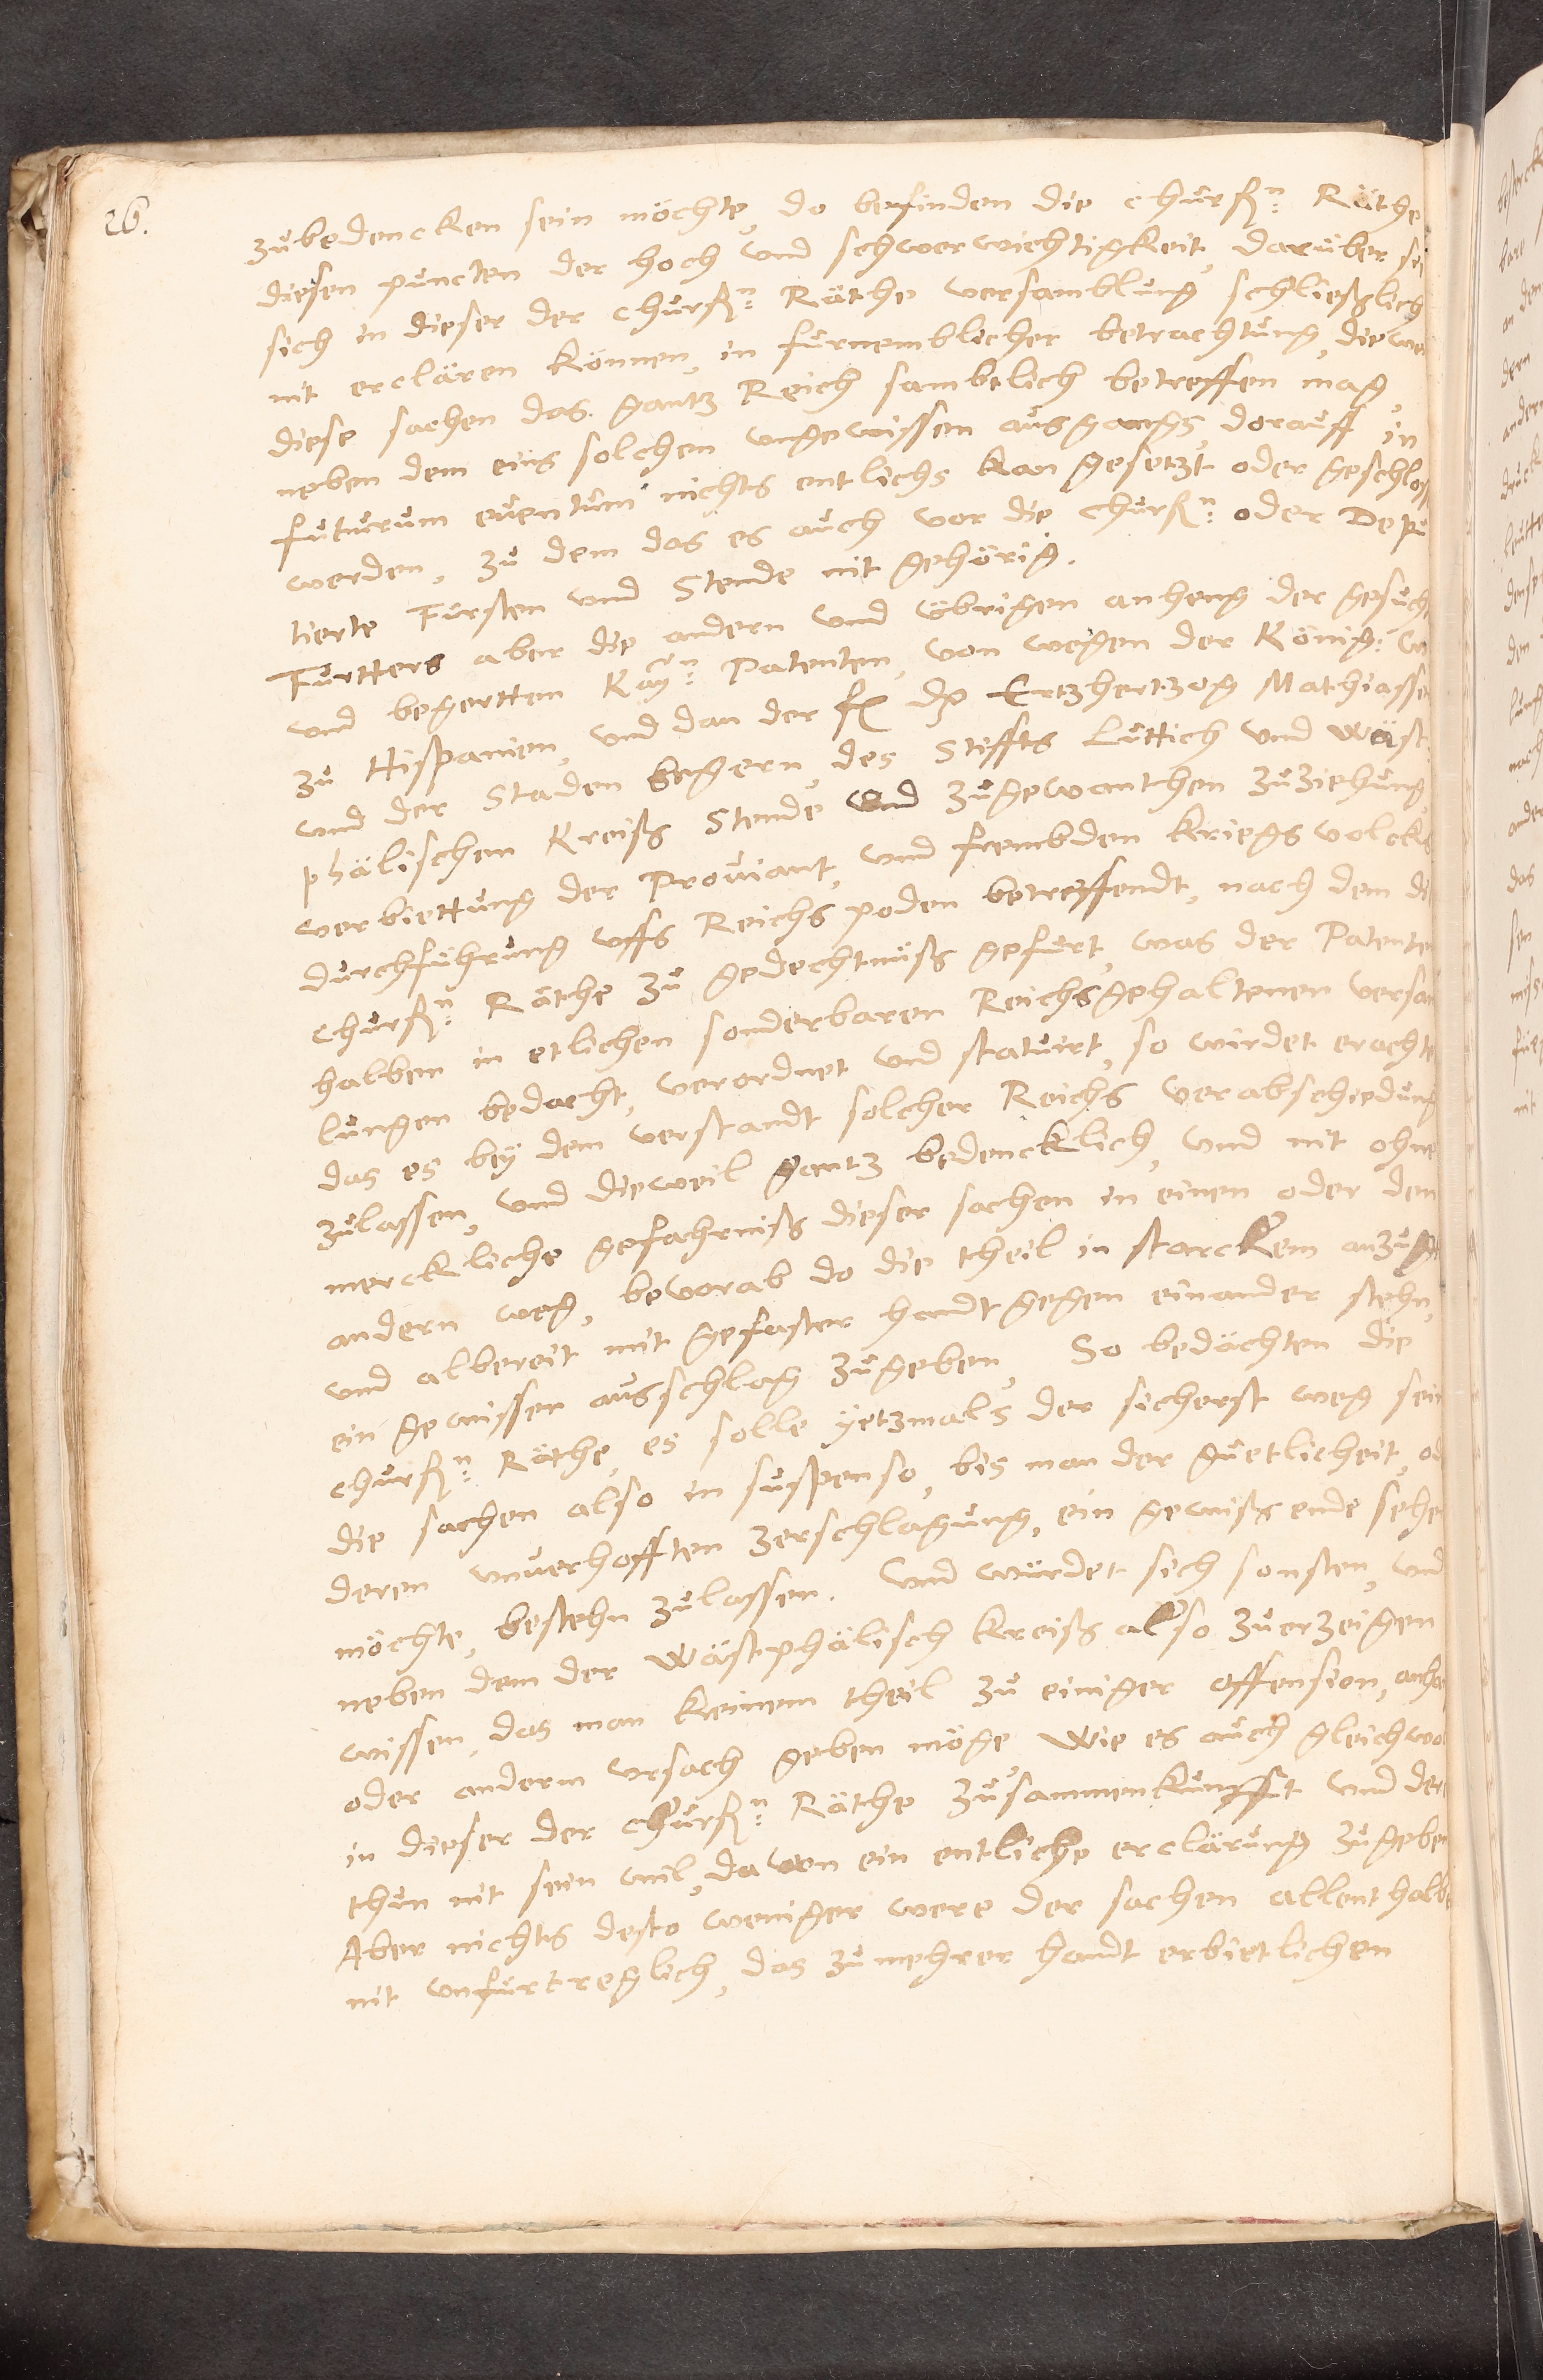 26.
zubedencken sein möchte, do befinden die churfn: Räthe
diesen puncten der hoch und schwerwichtigkeit, darüber sei
sich in dieser der churfn: Räthe versamblung schließlich
nit erclären können, in furnemblicher betrachtung, diewei
diese sachen das gantz Reich sambtlich betreffen mag,
neben dem eins solchen ungewissen ausgangs, dorauff in
futurum euentum nichts entlichs kan gesetzt oder geschloss
werden, zu dem das es auch vor die churfn: oder Depu
tierte Fürsten und Stende nit gehörig.
Furtters aber die andern und übrigen anheng der gesuch
und begertten Kayn: Patenten, von wegen der König: w
zu Hispanien, und dan der fl dt Ertzhertzog Mathiassen
und der Staden begern, des Stiffts Luttich und wäst
phälischen Kreiß Stende und zugewanthen zuziehung,
verbiettung der Prouiant, und frembden kriegsvolcks
durchführung uffs Reichs poden betreffendt, nach dem di
churfn: Räthe zu gedechtnüß gefurt, was der Patenten
halben in etlichen sonderbaren Reichsgehaltenen versam
lungen bedacht, verordnet und statuirt, so wirdet erachte
das es bey dem verstandt solcher Reichs verabschiedung
zulassen, und dieweil gantz bedencklich, und nit ohne
merckliche gefahrniß dieser sachen in einen oder den
andern weg, bevorab do die theil in starckem anzug
und albereit mit gefaster handt gegen einander stehn,
ein gewissen ausschlag zugeben, So bedächten die
churfn: Räthe, es solle yetzmals der sicherst weg sein
die sachen also in suspenso, bis man der guetlicheit, od
deren unuerhofften zerschlagung, ein gewiß ende sehe
möchte, bestehn zulassen. Und würdet sich sonsten, und
neben dem der wästphälisch kreiß also zuerzeigen
wissen, das man keinem theil zu einiger offension, anha
oder anderm ursach geben möge Wie es auch gleichwol
in dieser der churfn: Räthe zusammenkunfft und dere
thun nit sein wil, davon ein entliche erclärung zugeben
Aber nichts desto weniger were der sachen allenthalbe
nit unfürtreglich, das zu mehrer handt erbietlichen